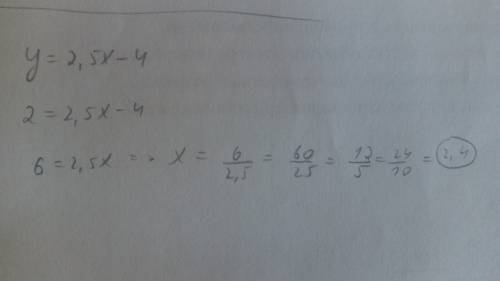 y = 2,5x - 4
2 = 2,5x - 4
6 = 2,5x => x = 6/2,5 = 60/25 = 12/5 = 24/10 = 2,4